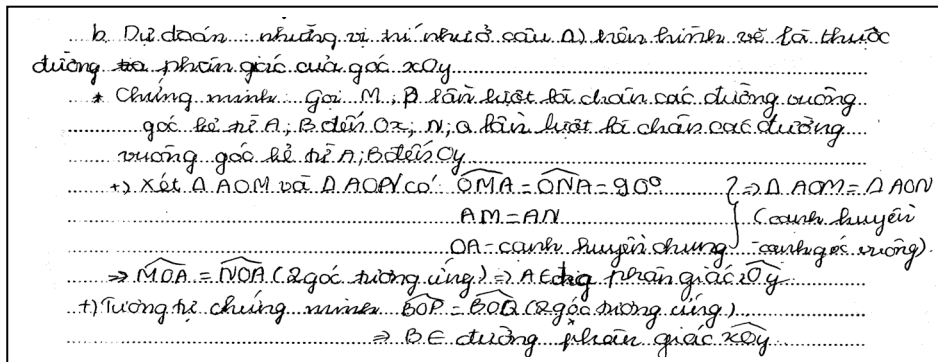 b. Dự đoán: những vị trí như ở câu a) trên hình vẽ là thuộc
đường phân giác của góc xOy
* Chứng minh: Gọi M; P lần lượt là chân các đường vuông
góc kẻ từ A; B đến Ox; N; Q lần lượt là chân các đường
vuông góc kẻ từ A; B đến Oy
+) Xét Δ AOM và Δ AON có: \widehat{OMA} = \widehat{ONA} = 90° } => Δ AOM = Δ AON
AM = AN (cạnh huyền
OA - cạnh huyền chung - cạnh góc vuông).
=> \widehat{MOA} = \widehat{NOA} (2 góc tương ứng) => A ∈ đg phân giác \widehat{xOy}
+) Tương tự chứng minh \widehat{BOP} = \widehat{BOQ} (2 góc tương ứng)
=> B ∈ đường phân giác \widehat{xOy}